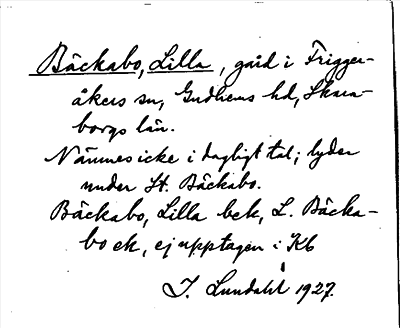 Bäckabo, Lilla, gård i Frigger-
åkers sn, Gudhems hd, Skara-
borgs län.
Nämnes icke i dagligt tal; lyder
under St. Bäckabo.
Bäckabo, Lilla bek, L. Bäcka-
bo ek, ej upptagen i Kb
I. Lundahl 1927.